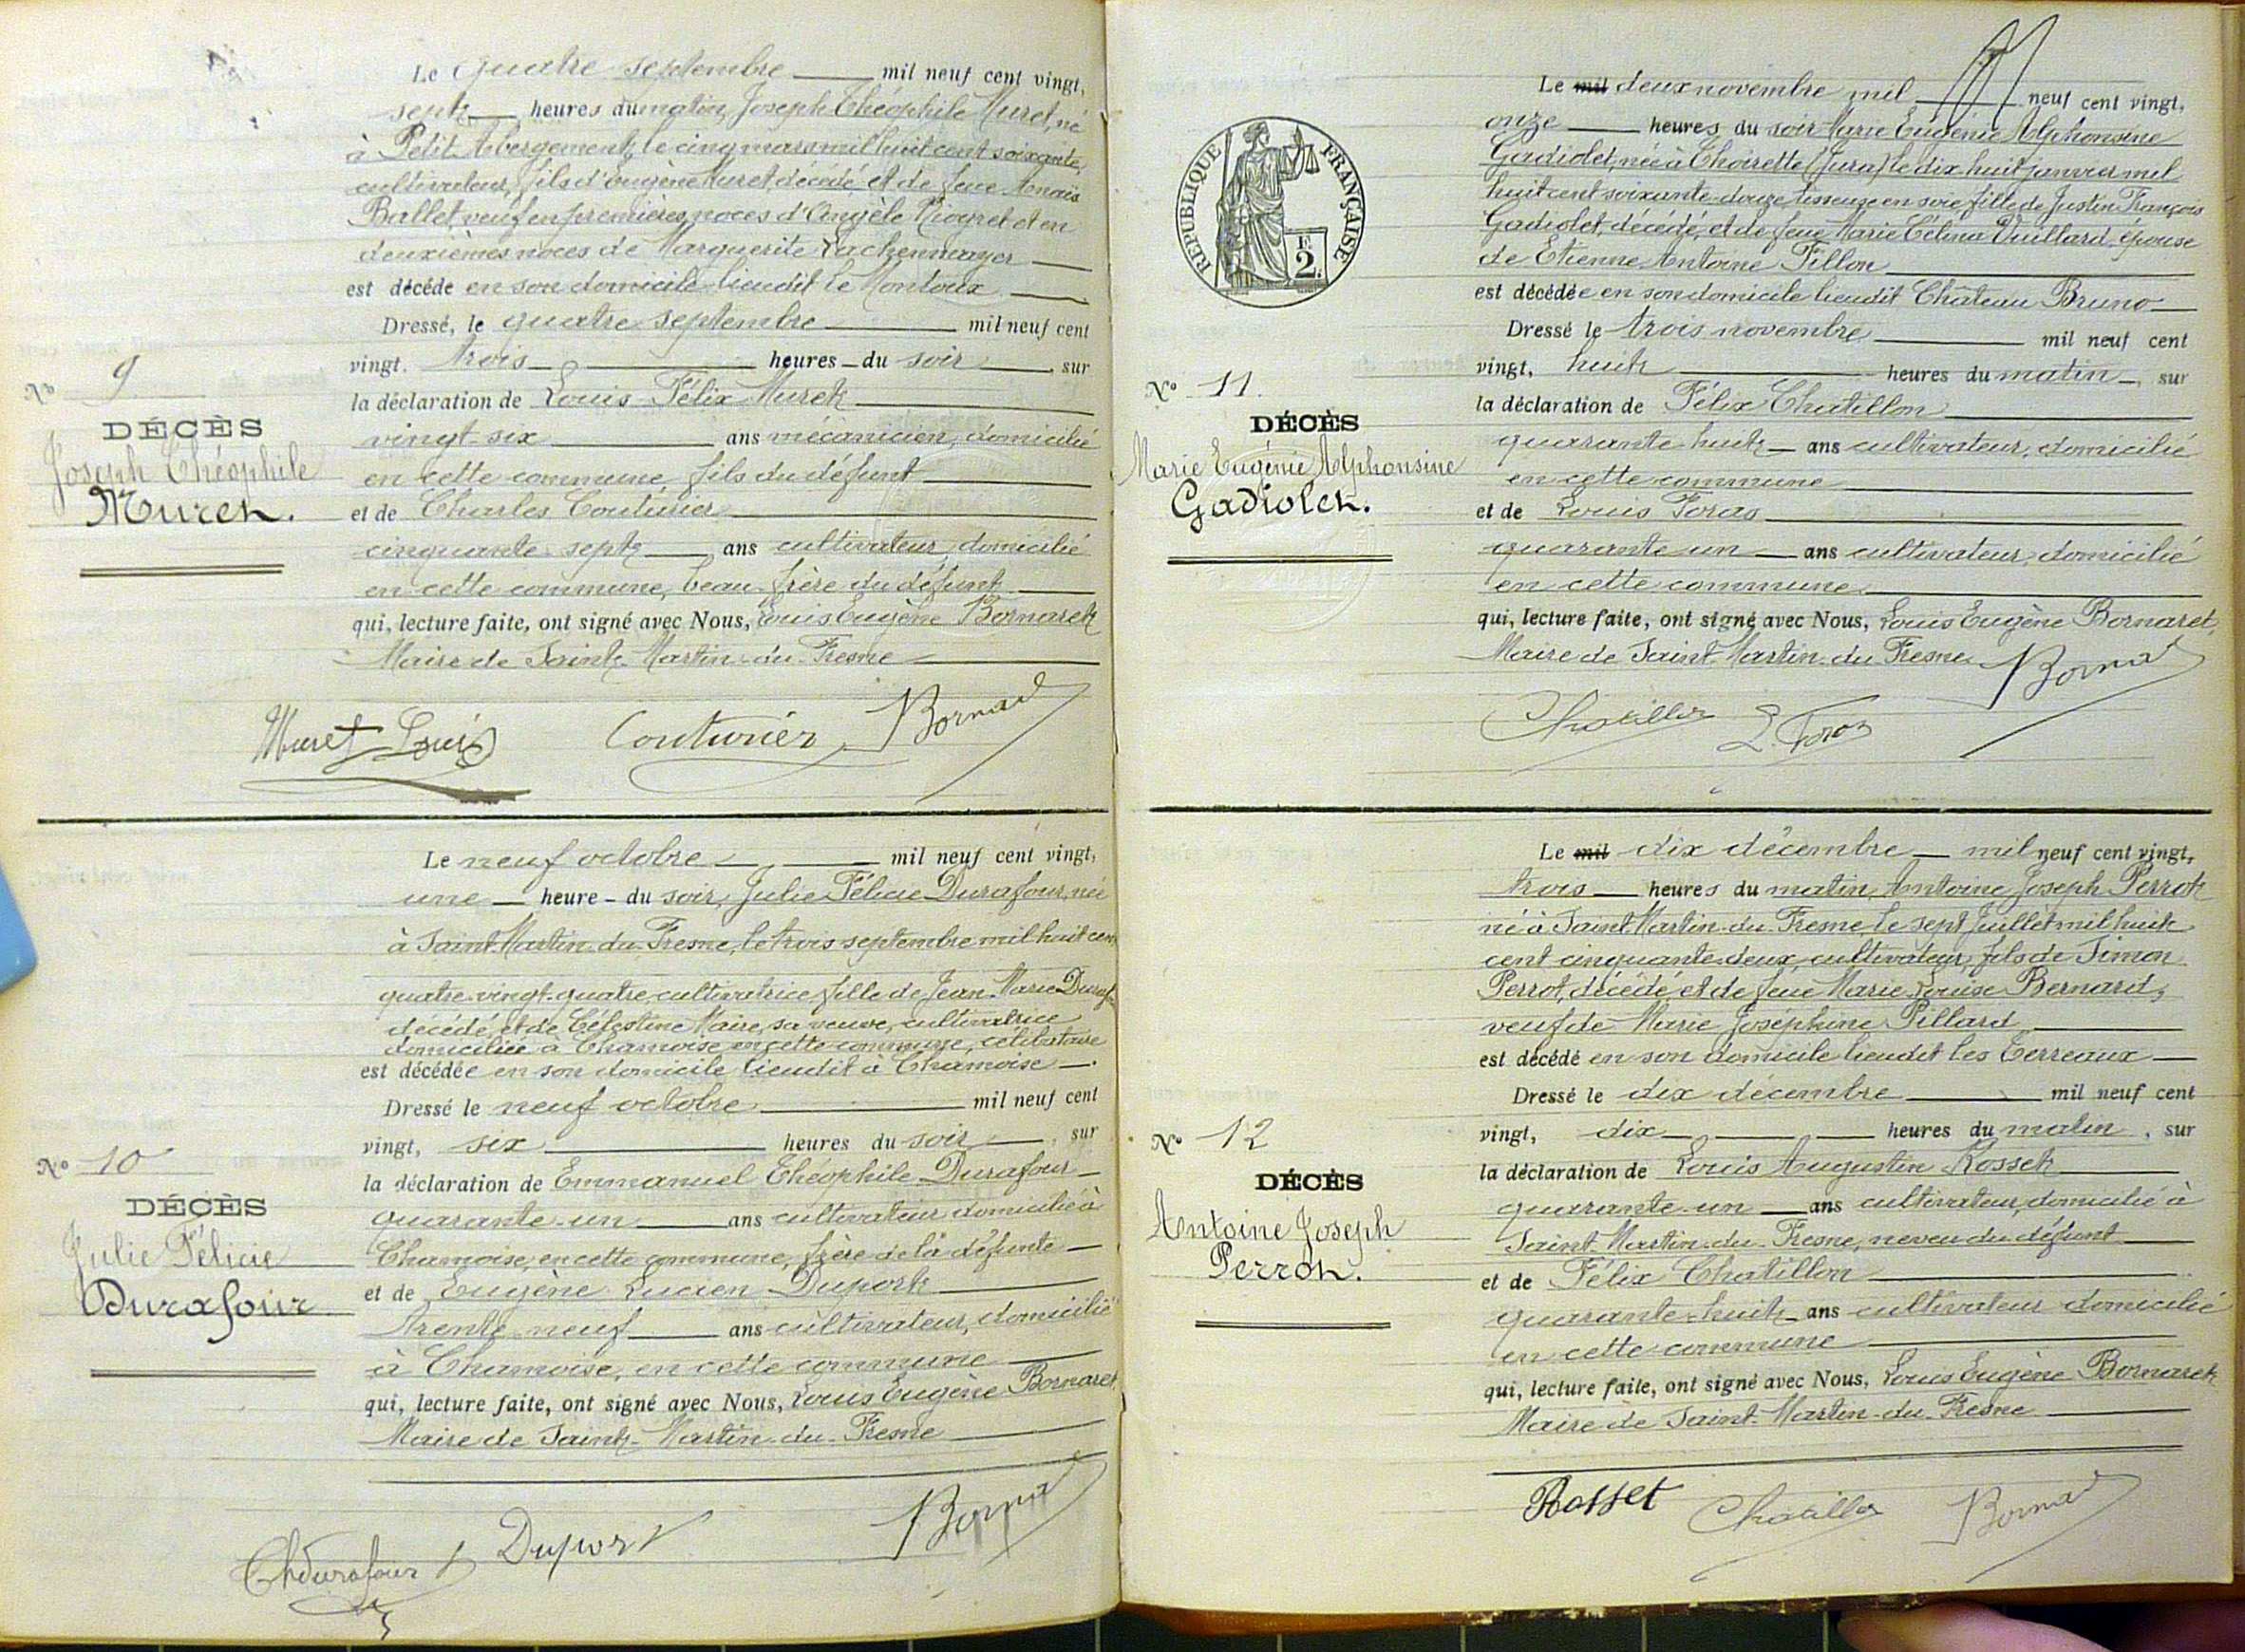 Le quatre septembre mil neuf cent vingt,
sept heures du matin, Joseph Théophile Muret, né
à Petit Abergement, le cinq mars mil huit cent soixante,
cultivateur, fils d'Eugène Muret, décédé et de feue Anaïs
Ballet, veuf en premières noces d'Angèle et en
deuxièmes noces de Marguerite Lachenmayer
est décédé en son domicile lieudit le Montoux
Dressé, le quatre septembre mil neuf cent
vingt. trois heures du soir, sur
la déclaration de Louis Félix Muret
vingt-six ans mécanicien, domicilié
en cette commune, fils du défunt
et de Charles Couturier
cinquante sept ans cultivateur, domicilié
en cette commune, beau-frère du défunt
qui, lecture faite, ont signé avec Nous, Louis Eugène Bornaret
Maire de Saint-Martin-du-Fresne
No 9
DÉCÈS
Joseph Théophile
Muret.
Muret Louis Couturier Bornaret
Le neuf octobre mil neuf cent vingt,
une heure du soir, Julie Félicie Durafour, née
à Saint-Martin-du-Fresne, le trois septembre mil huit cent
quatre-vingt-quatre, cultivatrice, fille de Jean-Marie Durafour
décédé, et de Célestine Maire, sa veuve, cultivatrice
domiciliée à Chamoise en cette commune, célibataire
est décédée en son domicile lieudit à Chamoise.
Dressé le neuf octobre mil neuf cent
vingt, six heures du soir, sur
la déclaration de Emmanuel Théophile Durafour
quarante-un ans cultivateur domicilié à
Chamoise, en cette commune, frère de la défunte
et de Eugène Lucien Duport
trente-neuf ans cultivateur, domicilié
à Chamoise, en cette commune
qui, lecture faite, ont signé avec Nous, Louis Eugène Bornaret
Maire de Saint-Martin-du-Fresne
No 10
DÉCÈS
Julie Félicie
Durafour
Thdurafour Duport Bornaret
RÉPUBLIQUE FRANÇAISE
2F.
Le mil deux novembre mil neuf cent vingt,
onze heures du soir Marie Eugénie Alphonsine
Gadiolet, née à Thoirette (Jura) le dix huit janvier mil
huit cent soixante-douze tisseuse en soie, fille de Justin François
Gadiolet, décédé, et de feue Marie Célina Vuillard, épouse
de Etienne Antoine Fillon
est décédée en son domicile lieudit Château Bruno
Dressé le trois novembre mil neuf cent
vingt, huit heures du matin, sur
la déclaration de Félix Chatillon
quarante huit ans cultivateur, domicilié
en cette commune
et de Louis Foras
quarante un ans cultivateur, domicilié
en cette commune
qui, lecture faite, ont signé avec Nous, Louis Eugène Bornaret,
Maire de Saint-Martin-du-Fresne
No 11.
DÉCÈS
Marie Eugénie Alphonsine
Gadiolet.
Bornaret
Chatillon L. Foras
Le mil dix décembre mil neuf cent vingt,
trois heures du matin, Antoine Joseph Perrot
né à Saint-Martin-du-Fresne, le sept Juillet mil huit
cent cinquante deux, cultivateur, fils de Simon
Perrot, décédé et de feue Marie Louise Bernard,
veuf de Marie Joséphine Pillard
est décédé en son domicile lieudit les Terreaux
Dressé le dix décembre mil neuf cent
vingt, dix heures du matin, sur
la déclaration de Louis Augustin Rosset
quarante-un ans cultivateur, domicilié à
Saint-Martin-du-Fresne, neveu du défunt
et de Félix Chatillon
quarante-huit ans cultivateur domicilié
en cette commune
qui, lecture faite, ont signé avec Nous, Louis Eugène Bornaret
Maire de Saint-Martin-du-Fresne
No 12
DÉCÈS
Antoine Joseph
Perrot.
Rosset Chatillon Bornaret